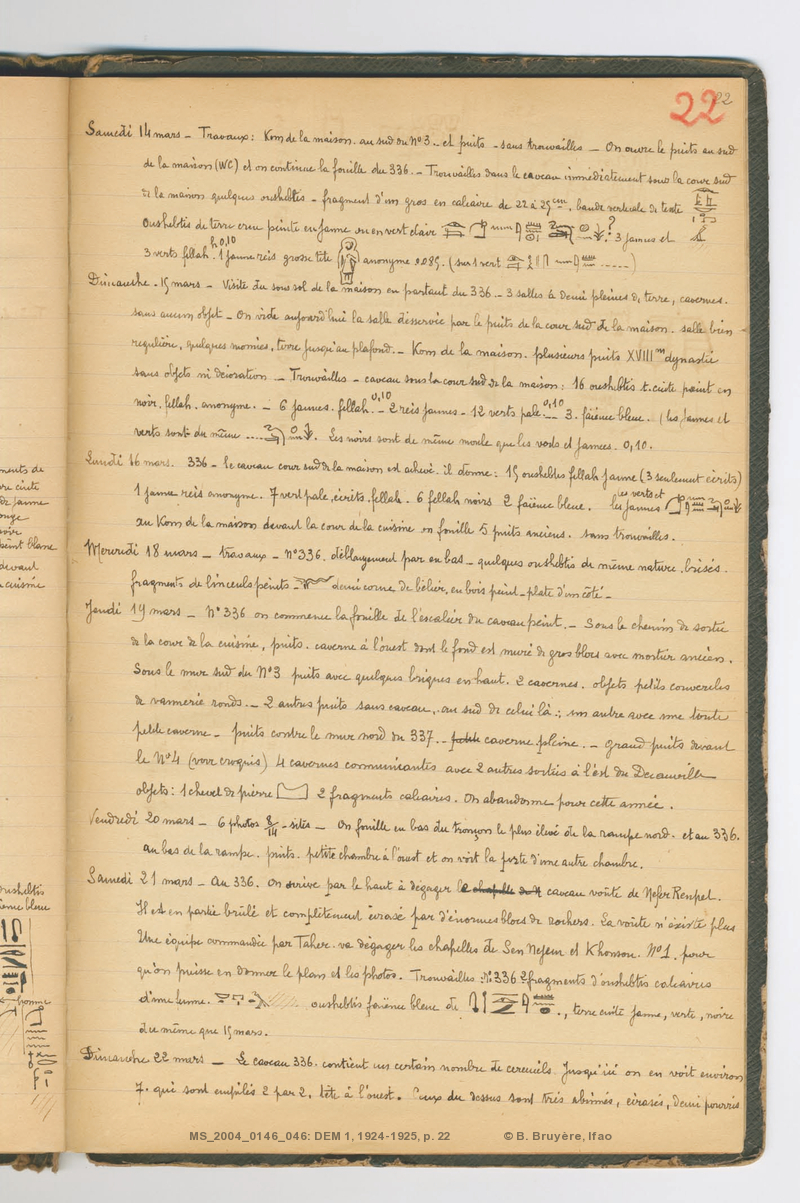 22 22
Samedi 14 mars - Travaux: Kom de la maison. au sud du N°3 - et puits - sans trouvailles - On ouvre le puits au sud
de la maison (WC) et on continue la fouille du 336. - Trouvailles dans le caveau immédiatement sous la cour sud
de la maison quelques oushebtis - fragment d'un gros en calcaire de 22 à 25cm. bande verticale de texte
Oushebtis de terre crue peinte en jaune ou en vert claire ? 3 jaunes et
3 verts fellah h. 0,10. 1 jaune reis grosse tête anonyme 0.085. (sur 1 vert ......)
Dimanche. 15 mars - Visite du sous sol de la maison en partant du 336. - 3 salles à demi pleines de terre, cavernes.
sans aucun objet - On vide aujourd'hui la salle desservie par le puits de la cour sud de la maison. salle bien
régulière, quelques momies, terre jusqu'au plafond. - Kom de la maison. plusieurs puits XVIII dynastie
sans objets ni décoration - Trouvailles - caveau sous la cour sud de la maison: 16 oushebtis t. cuite peint en
noir. fellah. anonyme. - 6 jaunes. fellah 0,10 - 2 reis jaunes - 12 verts pale. 0,10 3. faïence bleue. (les jaunes et
verts sont du même .... . Les noirs sont de même moule que les verts et jaunes. 0,10.
Lundi 16 mars. 336 - Le caveau cour sud de la maison est achevé. il donne: 15 oushebtis fellah jaune (3 seulement écrits)
1 jaune reis anonyme. 7 vert pale, écrits. fellah. 6 fellah noirs 2 faïence bleue. les verts et
les jaunes
au Kom de la maison devant la cour de la cuisine on fouille 5 puits anciens. sans trouvailles.
Mercredi 18 mars - travaux - N°336. déblayement par en bas - quelques oushebtis de même nature. brisés.
fragments de linceuls peints - demi corne de bélier, en bois peint - plate d'un côté -
Jeudi 19 mars - N° 336 on commence la fouille de l'escalier du caveau peint. - Sous le chemin de sortie
de la cour de la cuisine, puits. caverne à l'ouest dont le fond est muré de gros blocs avec mortier ancien.
Sous le mur sud du N°3 puits avec quelques briques en haut. 2 cavernes. objets petits couvercles
de vannerie ronds. - 2 autres puits sans caveau, au sud de celui là; un autre avec une toute
petite caverne - puits contre le mur nord du 337. - caverne pleine. - Grand puits devant
le N°4 (voir croquis) 4 cavernes communicantes avec 2 autres sorties à l'est du Decauville
objets: 1 chevet de pierre 2 fragments calcaires. On abandonne pour cette année.
Vendredi 20 mars - 6 photos 8/14 - sites - On fouille en bas du tronçon le plus élevé de la rampe nord. et au 336.
au bas de la rampe. puits. petite chambre à l'ouest et on voit la porte d'une autre chambre.
Samedi 21 mars - Au 336. On arrive par le haut à dégager le caveau voûté de Nefer Renpet.
Il est en partie brûlé et complètement écrasé par d'énormes blocs de rochers. La voûte n'existe plus
Une équipe commandée par Taher. va dégager les chapelles de Sen Nejem et Khonsou. N°1. pour
qu'on puisse en donner le plan et les photos. Trouvailles: N°336 2 fragments d'oushebtis calcaires
d'une femme. oushebtis faïence bleue de , terre cuite jaune, verte, noire
du même que 15 mars.
Dimanche 22 mars - Le caveau 336. contient un certain nombre de cercueils. Jusqu'ici on en voit environ
7. qui sont empilés 2 par 2, tête à l'ouest. Ceux du dessus sont très abîmés, écrasés, demi pourris
MS_2004_0146_046: DEM 1, 1924-1925, p. 22 © B. Bruyère, Ifao